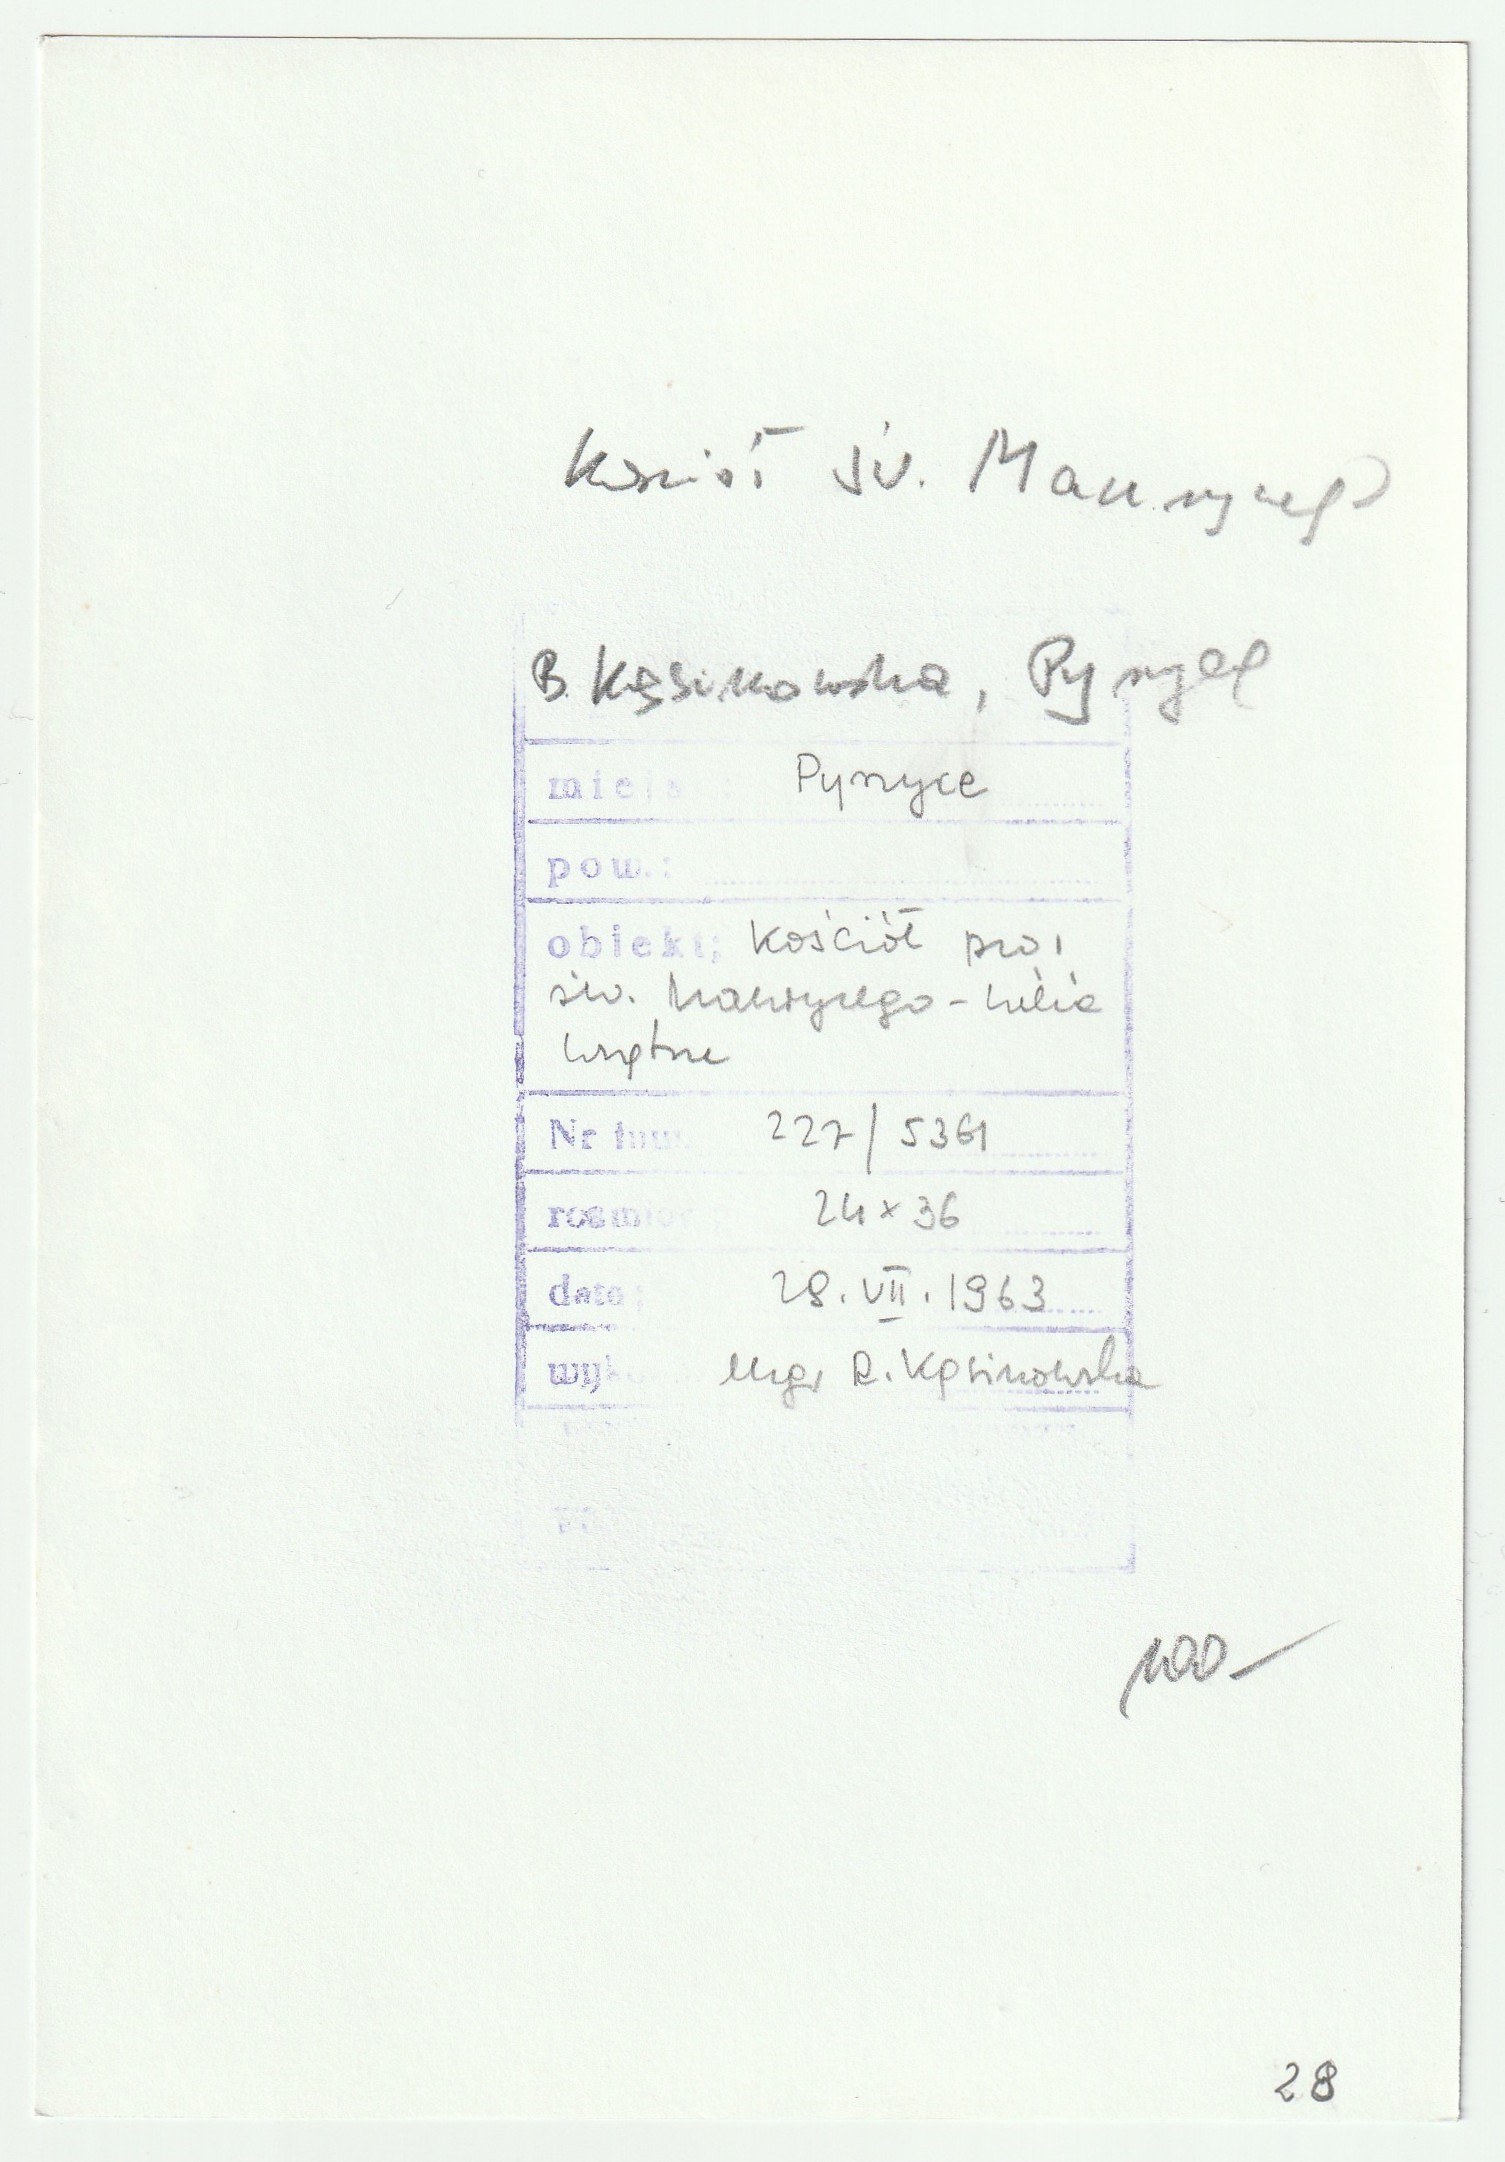 Kościół św. Maurycego
B. Kęsikowska, Pyrzyce
miejs Pyrzyce
pow.:
obiekt; Kościół par.
św. Maurycego - 
wnętrze
Nr inw. 227/5361
rozmiar 24 x 36
data; 28. VII. 1963
wyk Mgr R. Kąsinowska
28